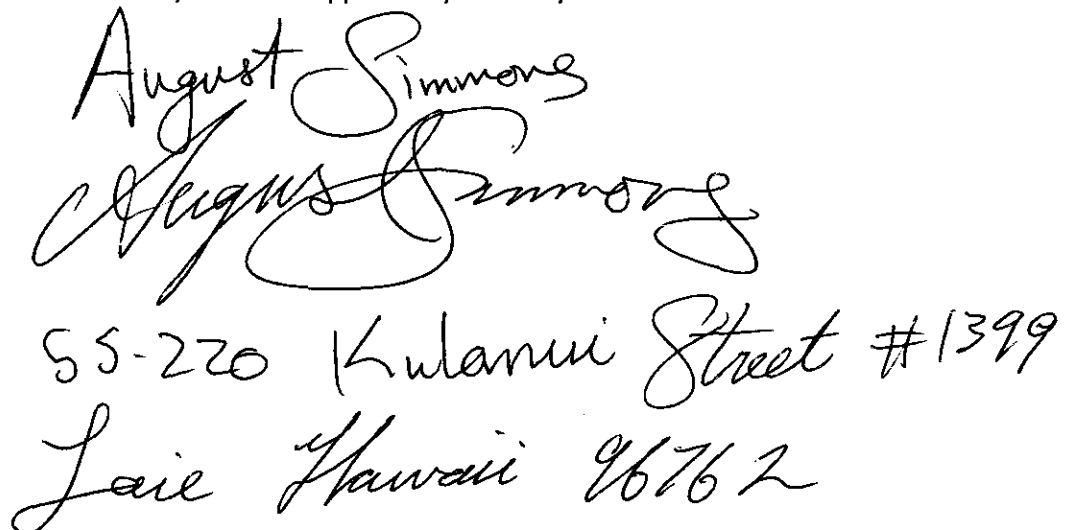 August Simmons
August Simmons
55-220 Kulanui Street #1399
Laie Hawaii 96762